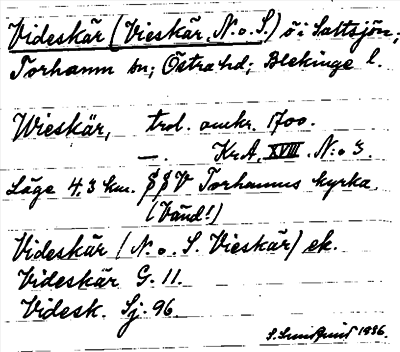 Videskär (Vieskär, N. o. S.) ö i Saltsjön;
Torhamn sn; Östra hd; Blekinge l.
Wieskär, trol. omkr. 1700.
—. KrA, XVIII. N:o 3.
Läge 4,3 km. SSV Torhamns kyrka.
(Vänd!)
Videskär (N. o. S. Vieskär) ek.
Videskär G. 11.
Videsk. Sj. 96.
1936.